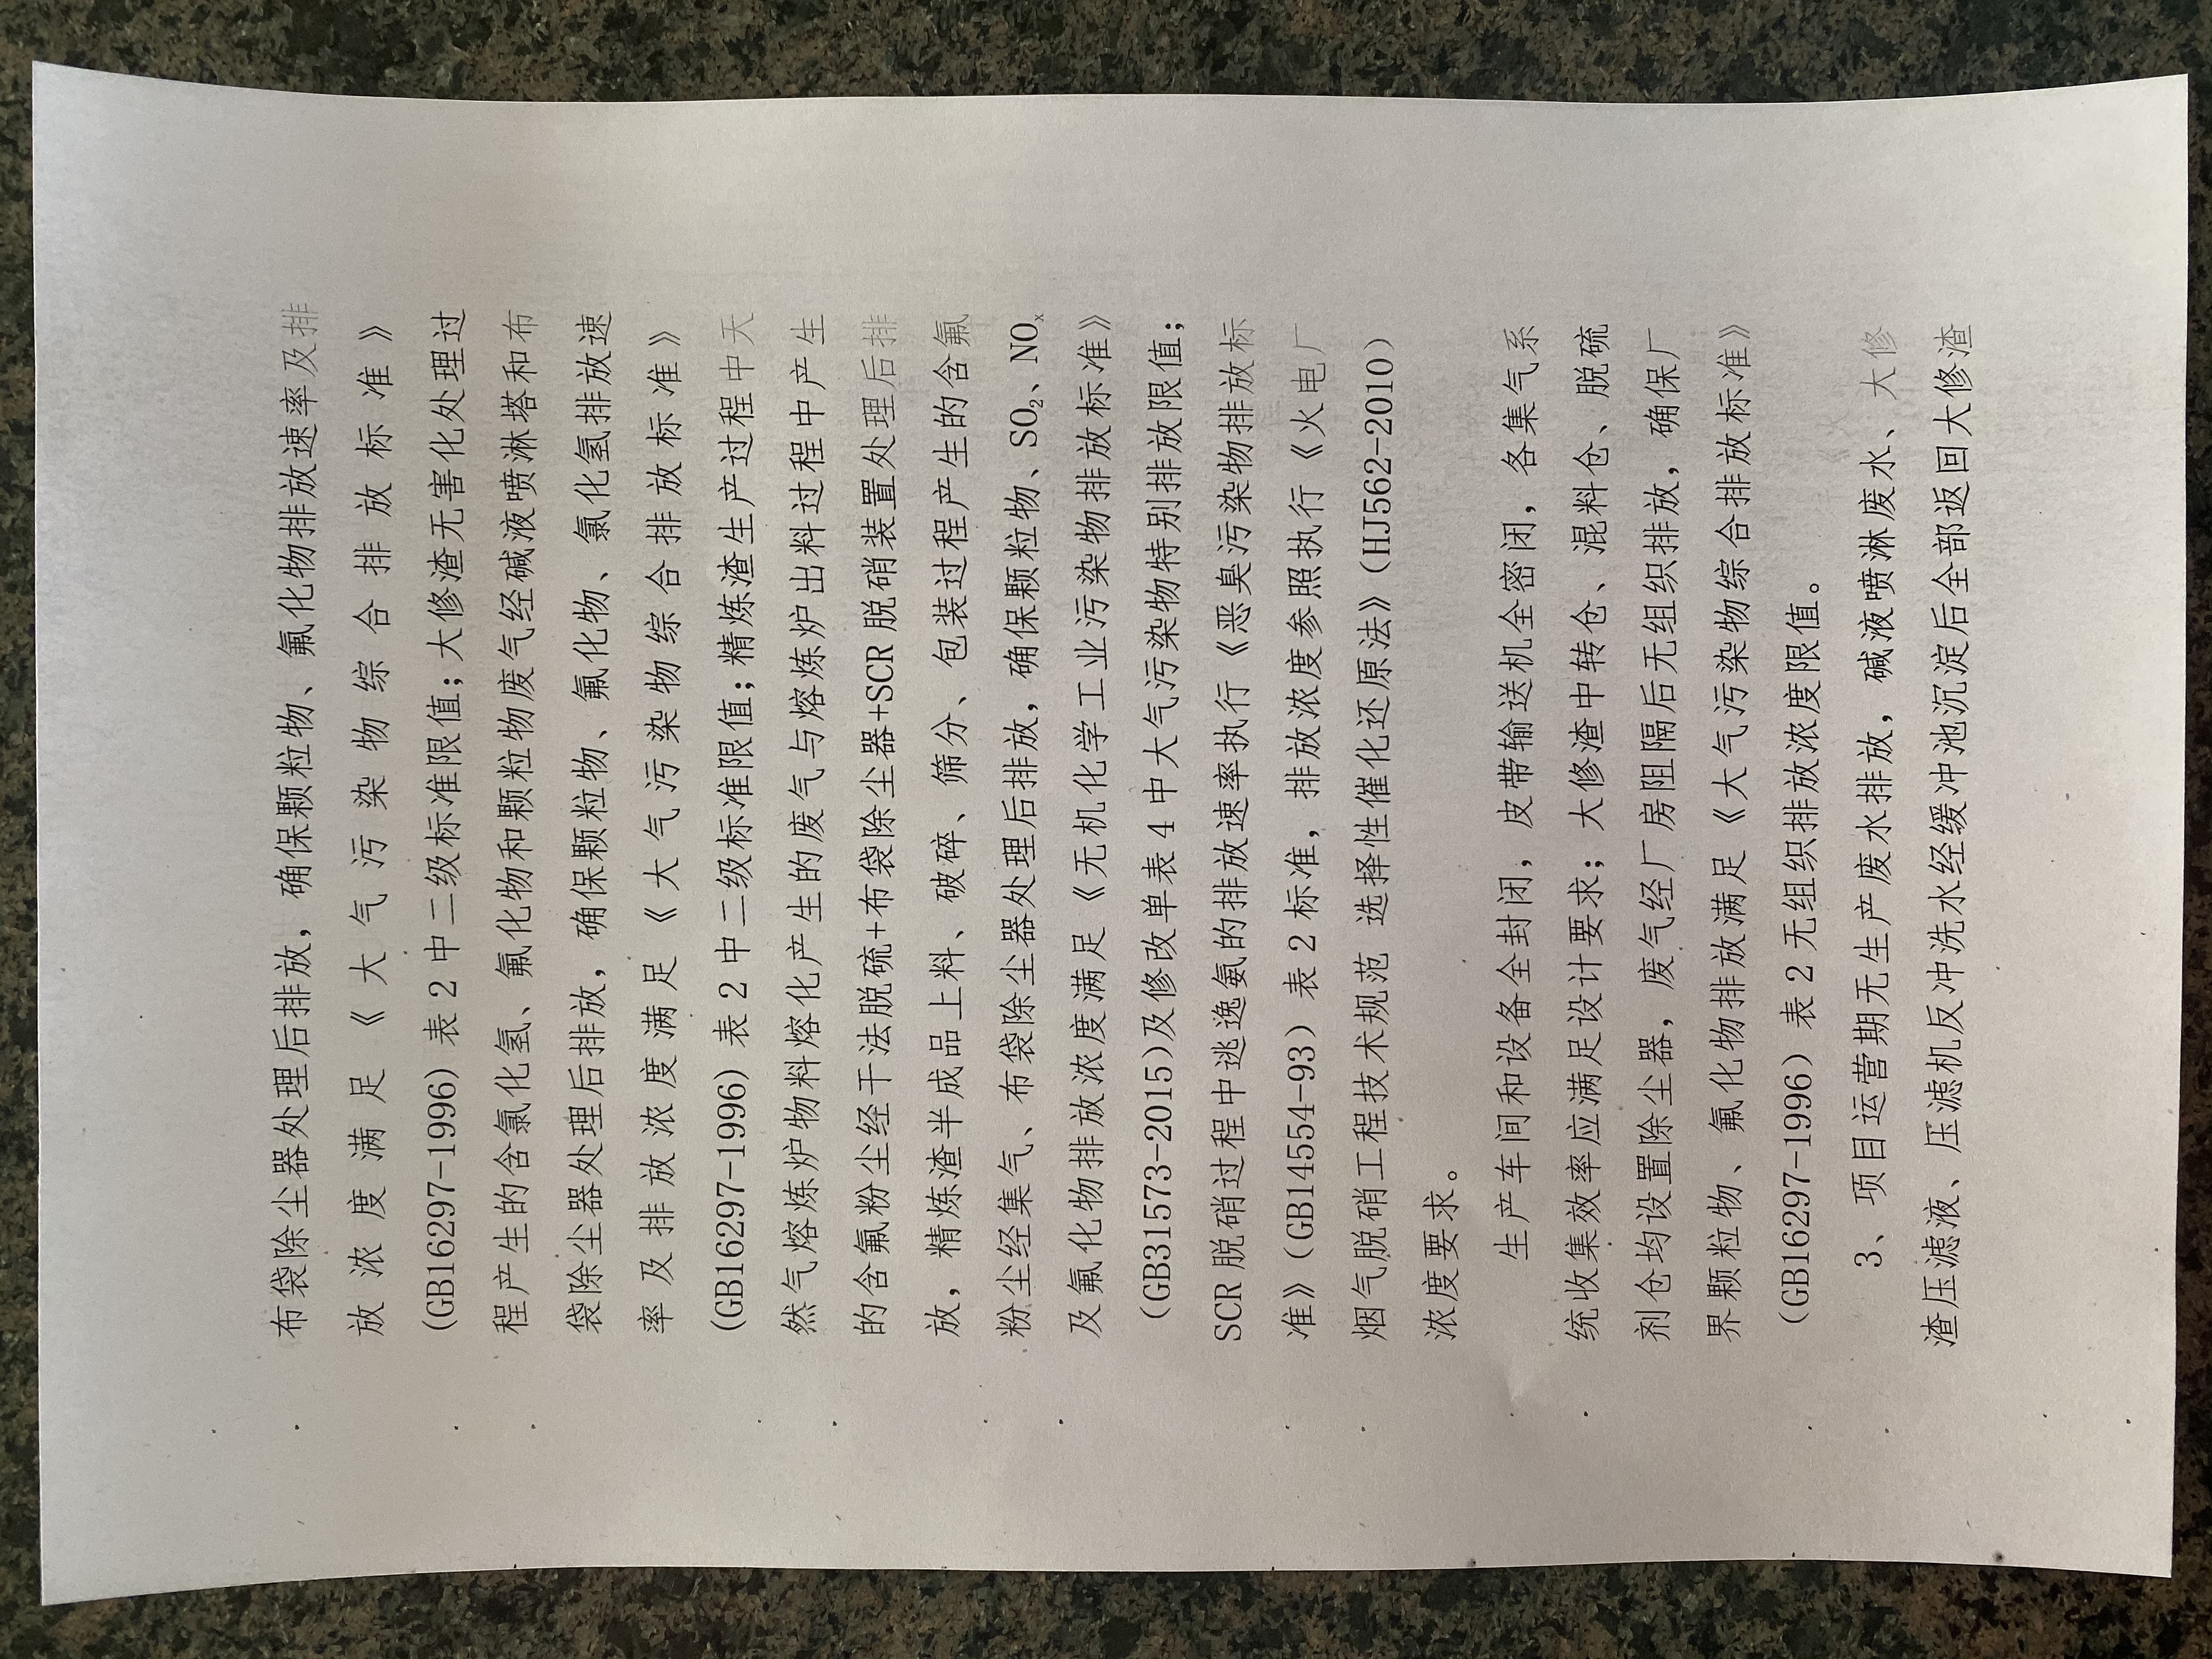 布袋除尘器处理后排放，确保颗粒物、氟化物排放速率及排
放浓度满足《大气污染物综合排放标准》
(GB16297-1996)表2中二级标准限值；大修渣无害化处理过
程产生的含氯化氢、氟化物和颗粒物废气经碱液喷淋塔和布
袋除尘器处理后排放，确保颗粒物、氟化物、氯化氢排放速
率及排放浓度满足《大气污染物综合排放标准》
(GB16297-1996)表2中二级标准限值；精炼渣生产过程中天
然气熔炼炉物料熔化产生的废气与熔炼炉出料过程中产生
的含氟粉尘经干法脱硫+布袋除尘器+SCR脱硝装置处理后排
放，精炼渣半成品上料、破碎、筛分、包装过程产生的含氟
粉尘经集气、布袋除尘器处理后排放，确保颗粒物、SO₂、NOₓ
及氟化物排放浓度满足《无机化学工业污染物排放标准》
(GB31573-2015)及修改单表4中大气污染物特别排放限值；
SCR脱硝过程中逃逸氨的排放速率执行《恶臭污染物排放标
准》（GB14554-93）表2标准，排放浓度参照执行《火电厂
烟气脱硝工程技术规范 选择性催化还原法》（HJ562-2010）
浓度要求。
生产车间和设备全封闭，皮带输送机全密闭，各集气系
统收集效率应满足设计要求；大修渣中转仓、混料仓、脱硫
剂仓均设置除尘器，废气经厂房阻隔后无组织排放，确保厂
界颗粒物、氟化物排放满足《大气污染物综合排放标准》
（GB16297-1996）表2无组织排放浓度限值。
3、项目运营期无生产废水排放，碱液喷淋废水、大修
渣压滤液、压滤机反冲洗水经缓冲池沉淀后全部返回大修渣